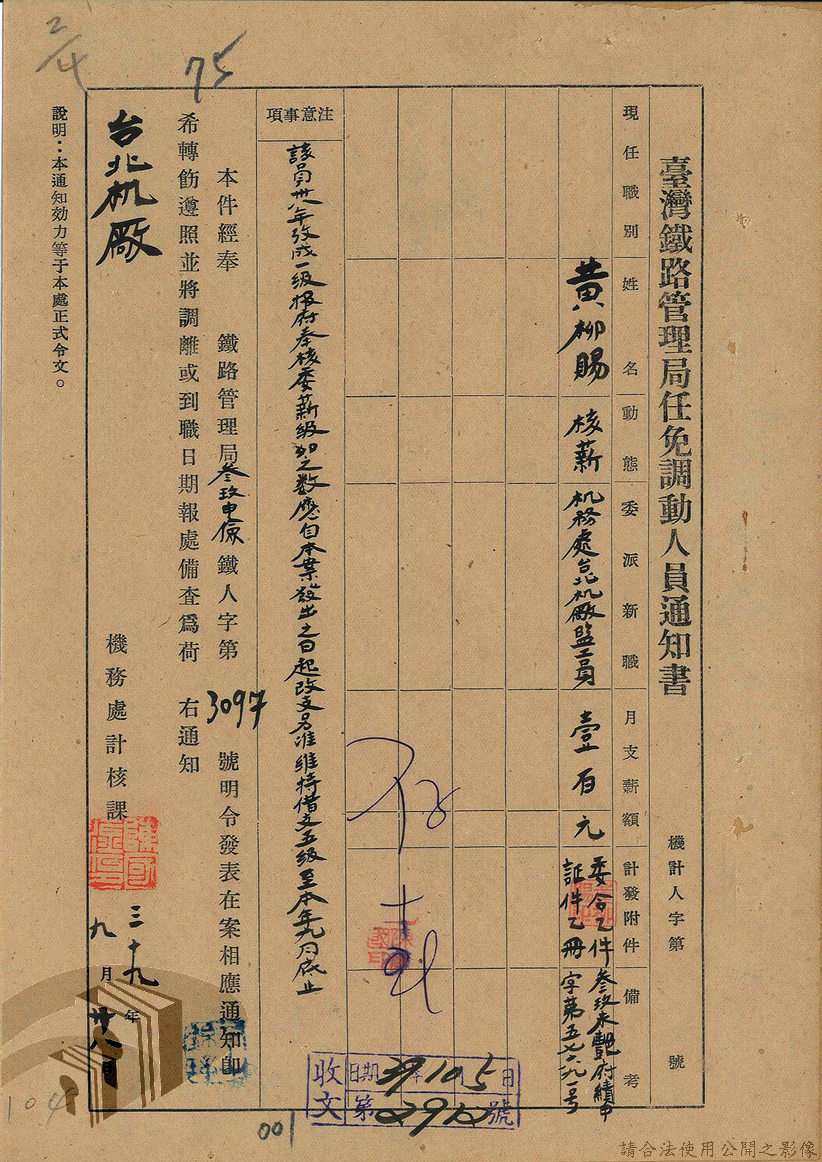 臺灣鐵路管理局任免調動人員通知書
機計人字第 號
現任職別
姓名
動態
委派新職
月支薪額
計發附件
備考
黃柳賜
核薪
机務處台北机廠監工員
壹百元
委令乙件
証件乙冊
叁玖未艷府績甲
字第五七六九一號
注意事項
該員卅八年考成一級报府奉核委薪級如之数應自本案發出之日起改支另准維持借支五級至本年九月底止
本件經奉 鐵路管理局叁玖申儉鐵人字第3097號明令發表在案相應通知卽
希轉飭遵照並將調離或到職日期報處備查爲荷 右通知
台北机廠
機務處計核課
三十九年
九月廿八日
說明：本通知効力等于本處正式令文。
75
收文
日期 39年10月5日
第2912號
001
104
請合法使用公開之影像